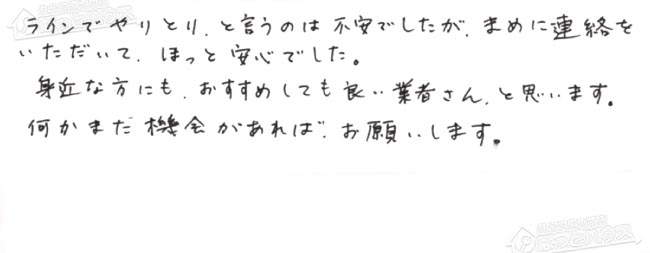 ラインでやりとり、と言うのは不安でしたが、まめに連絡を
いただいて、ほっと安心でした。
身近な方にも、おすすめしても良い業者さん、と思います。
何かまた機会があれば、お願いします。